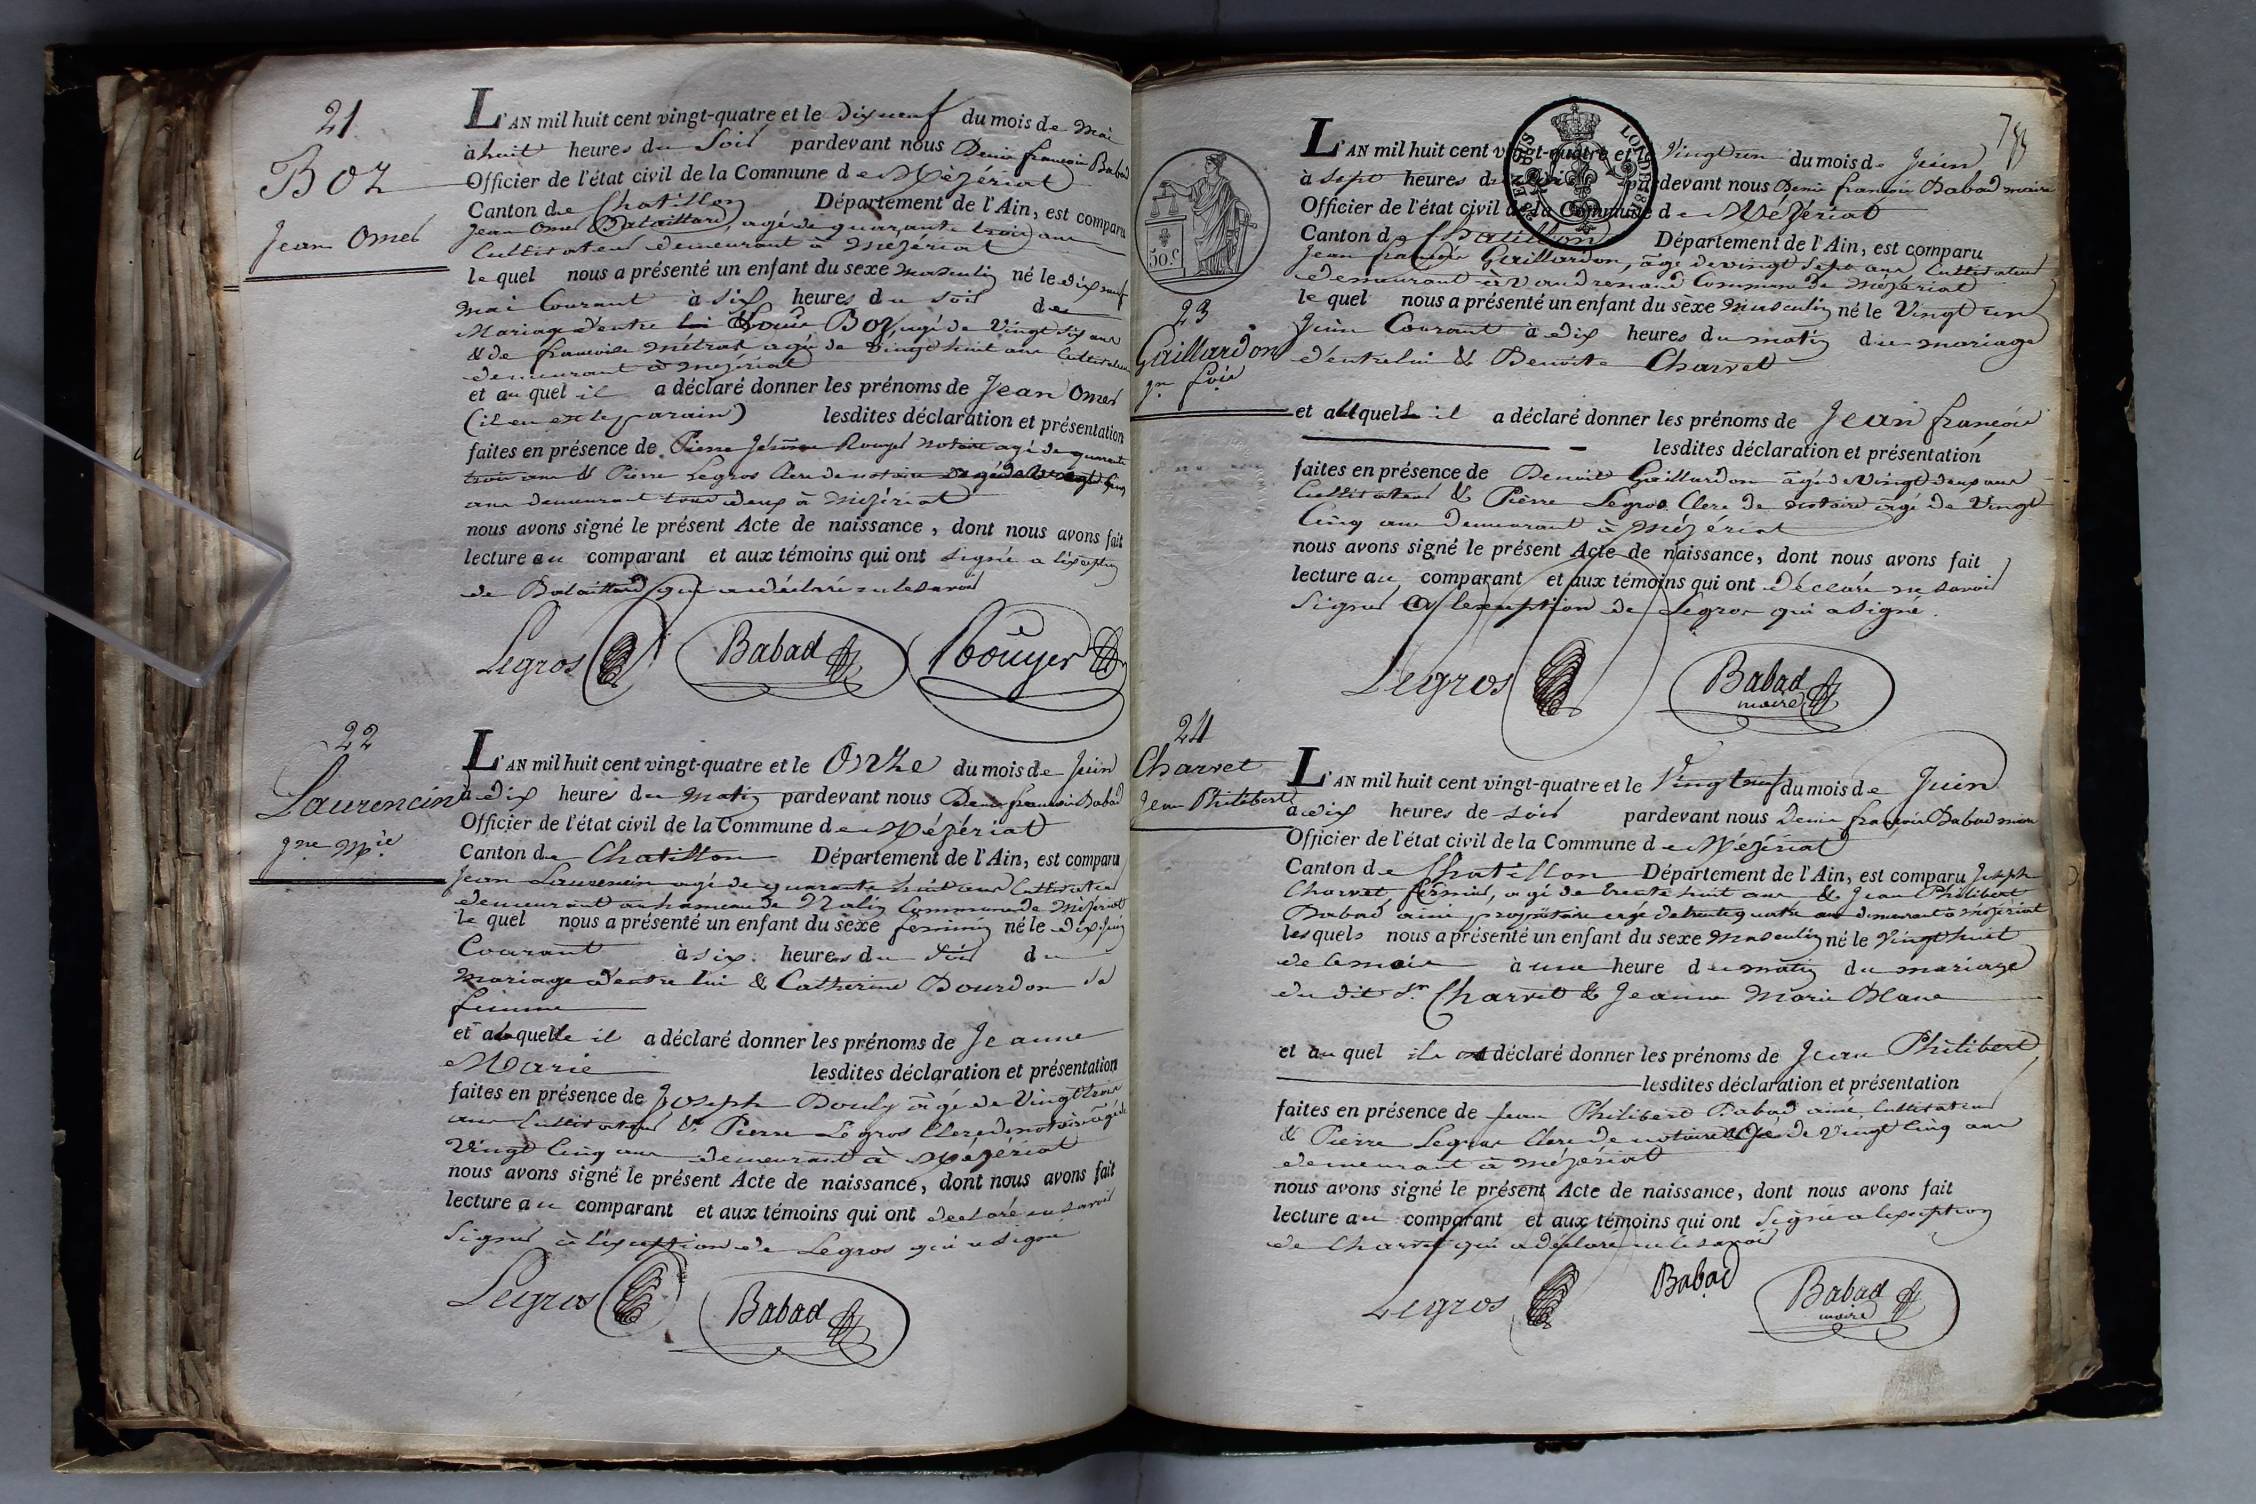 21
Boz
Jean Omer
L'AN mil huit cent vingt-quatre et le dix neuf du mois de Mai
à huit heures du Soir pardevant nous Denis françois Babad
Officier de l'état civil de la Commune de Mézériat
Canton de Chatillon Département de l'Ain, est comparu
Jean Omer Bataillard, agé de quarante trois ans
Cultivateur demeurant à Mézériat
le quel nous a présenté un enfant du sexe masculin né le dix neuf
mai Courant à six heures du soir de
Mariage d'entre Boz, agé de Vingt six ans
& de francoise Métrat agée de vingt huit ans Cultivateurs
demeurant à Mézériat
et au quel il a déclaré donner les prénoms de Jean Omer
(il en est le parain) lesdites déclaration et présentation
faites en présence de Pierre Jérôme Rouyer notaire agé de quarante
trois ans & Pierre Legros Clerc de notaire agé de vingt Cinq
ans demeurant tous deux à Mézériat
nous avons signé le présent Acte de naissance, dont nous avons fait
lecture au comparant et aux témoins qui ont signé a l'exception
de Bataillard qui a déclaré ne le savoir
Legros Babad Rouyer
22
Laurencin
Jne Mie
L'AN mil huit cent vingt-quatre et le Onze du mois de Juin
à dix heures du matin pardevant nous Denis francois Babad
Officier de l'état civil de la Commune de Mézériat
Canton de Chatillon Département de l'Ain, est comparu
Jean Laurencin agé de quarante huit ans Cultivateur
demeurant au hameau de Commune de Mézériat
le quel nous a présenté un enfant du sexe feminin né le dix Juin
Courant à six heures du Soir du
mariage d'entre lui & Catherine Bourdon sa
femme
et à laquelle il a déclaré donner les prénoms de Jeanne
Marie lesdites déclaration et présentation
faites en présence de Joseph Bouly âgé de Vingt trois
ans Cultivateur & Pierre Legros Clerc de notaire âgé de
Vingt Cinq ans demeurant à Mézériat
nous avons signé le présent Acte de naissance, dont nous avons fait
lecture au comparant et aux témoins qui ont declaré ne savoir
Signer à l'exception de Legros qui a signé
Legros Babad
78
SEPT EN SUS LOI DE 18
50.c
23
Gaillardon
Jn fois
L'AN mil huit cent vingt-quatre et le Vingt un du mois de Juin
à sept heures du pardevant nous Denis françois Babad maire
Officier de l'état civil de la Commune de Mézériat
Canton de Chatillon Département de l'Ain, est comparu
Jean françois Gaillardon, âgé de vingt Sept ans Cultivateur
demeurant à Vaudrenand Commune de Mézériat
le quel nous a présenté un enfant du sèxe masculin né le Vingt un
Juin Courant à dix heures du matin du mariage
d'entre lui & Benoite Charvet
et auquel il a déclaré donner les prénoms de Jean françois
lesdites déclaration et présentation
faites en présence de Benoit Gaillardon âgé de Vingt deux ans
Cultivateur & Pierre Legros Clerc de notaire âgé de Vingt
Cinq ans demeurant à Mézériat
nous avons signé le présent Acte de naissance, dont nous avons fait
lecture au comparant et aux témoins qui ont déclaré ne savoir
Signer à l'exception de Legros qui a signé.
Legros Babad maire
24
Charvet
Jean Philibert
L'AN mil huit cent vingt-quatre et le Vingt neuf du mois de Juin
à dix heures de soir pardevant nous Denis françois Babad maire
Officier de l'état civil de la Commune de Mézériat
Canton de Chatillon Département de l'Ain, est comparu Joseph
Charvet, fermier, agé de trente huit ans & Jean Philibert
Babad ainé, propriétaire agé de trente quatre ans demeurant à Mézériat
lesquels nous a présenté un enfant du sexe Masculin né le Vingt huit
de ce mois à une heure du matin du mariage
du dit Sr Charvet & Jeanne Marie Blanc
et au quel ils ont déclaré donner les prénoms de Jean Philibert
lesdites déclaration et présentation
faites en présence de Jean Philibert Babad ainé, Cultivateur
& Pierre Legros Clerc de notaire agé de Vingt Cinq ans
demeurant à Mézériat
nous avons signé le présent Acte de naissance, dont nous avons fait
lecture au comparant et aux témoins qui ont Signé a l'exception
de Charvet qui a déclaré ne le savoir
Legros Babad Babad maire